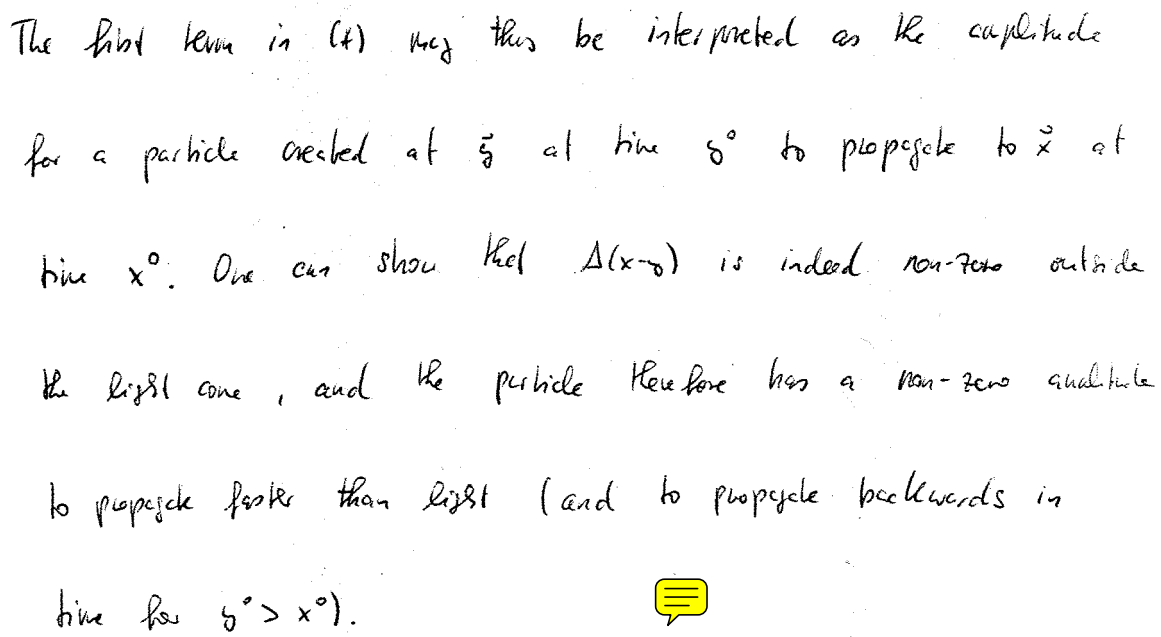 The first term in (*) may thus be interpreted as the amplitude
for a particle created at y⃗ at time y⁰ to propagate to x⃗ at
time x⁰. One can show that Δ(x-y) is indeed non-zero outside
the light cone, and the particle therefore has a non-zero amplitude
to propagate faster than light (and to propagate backwards in
time for y⁰ > x⁰).